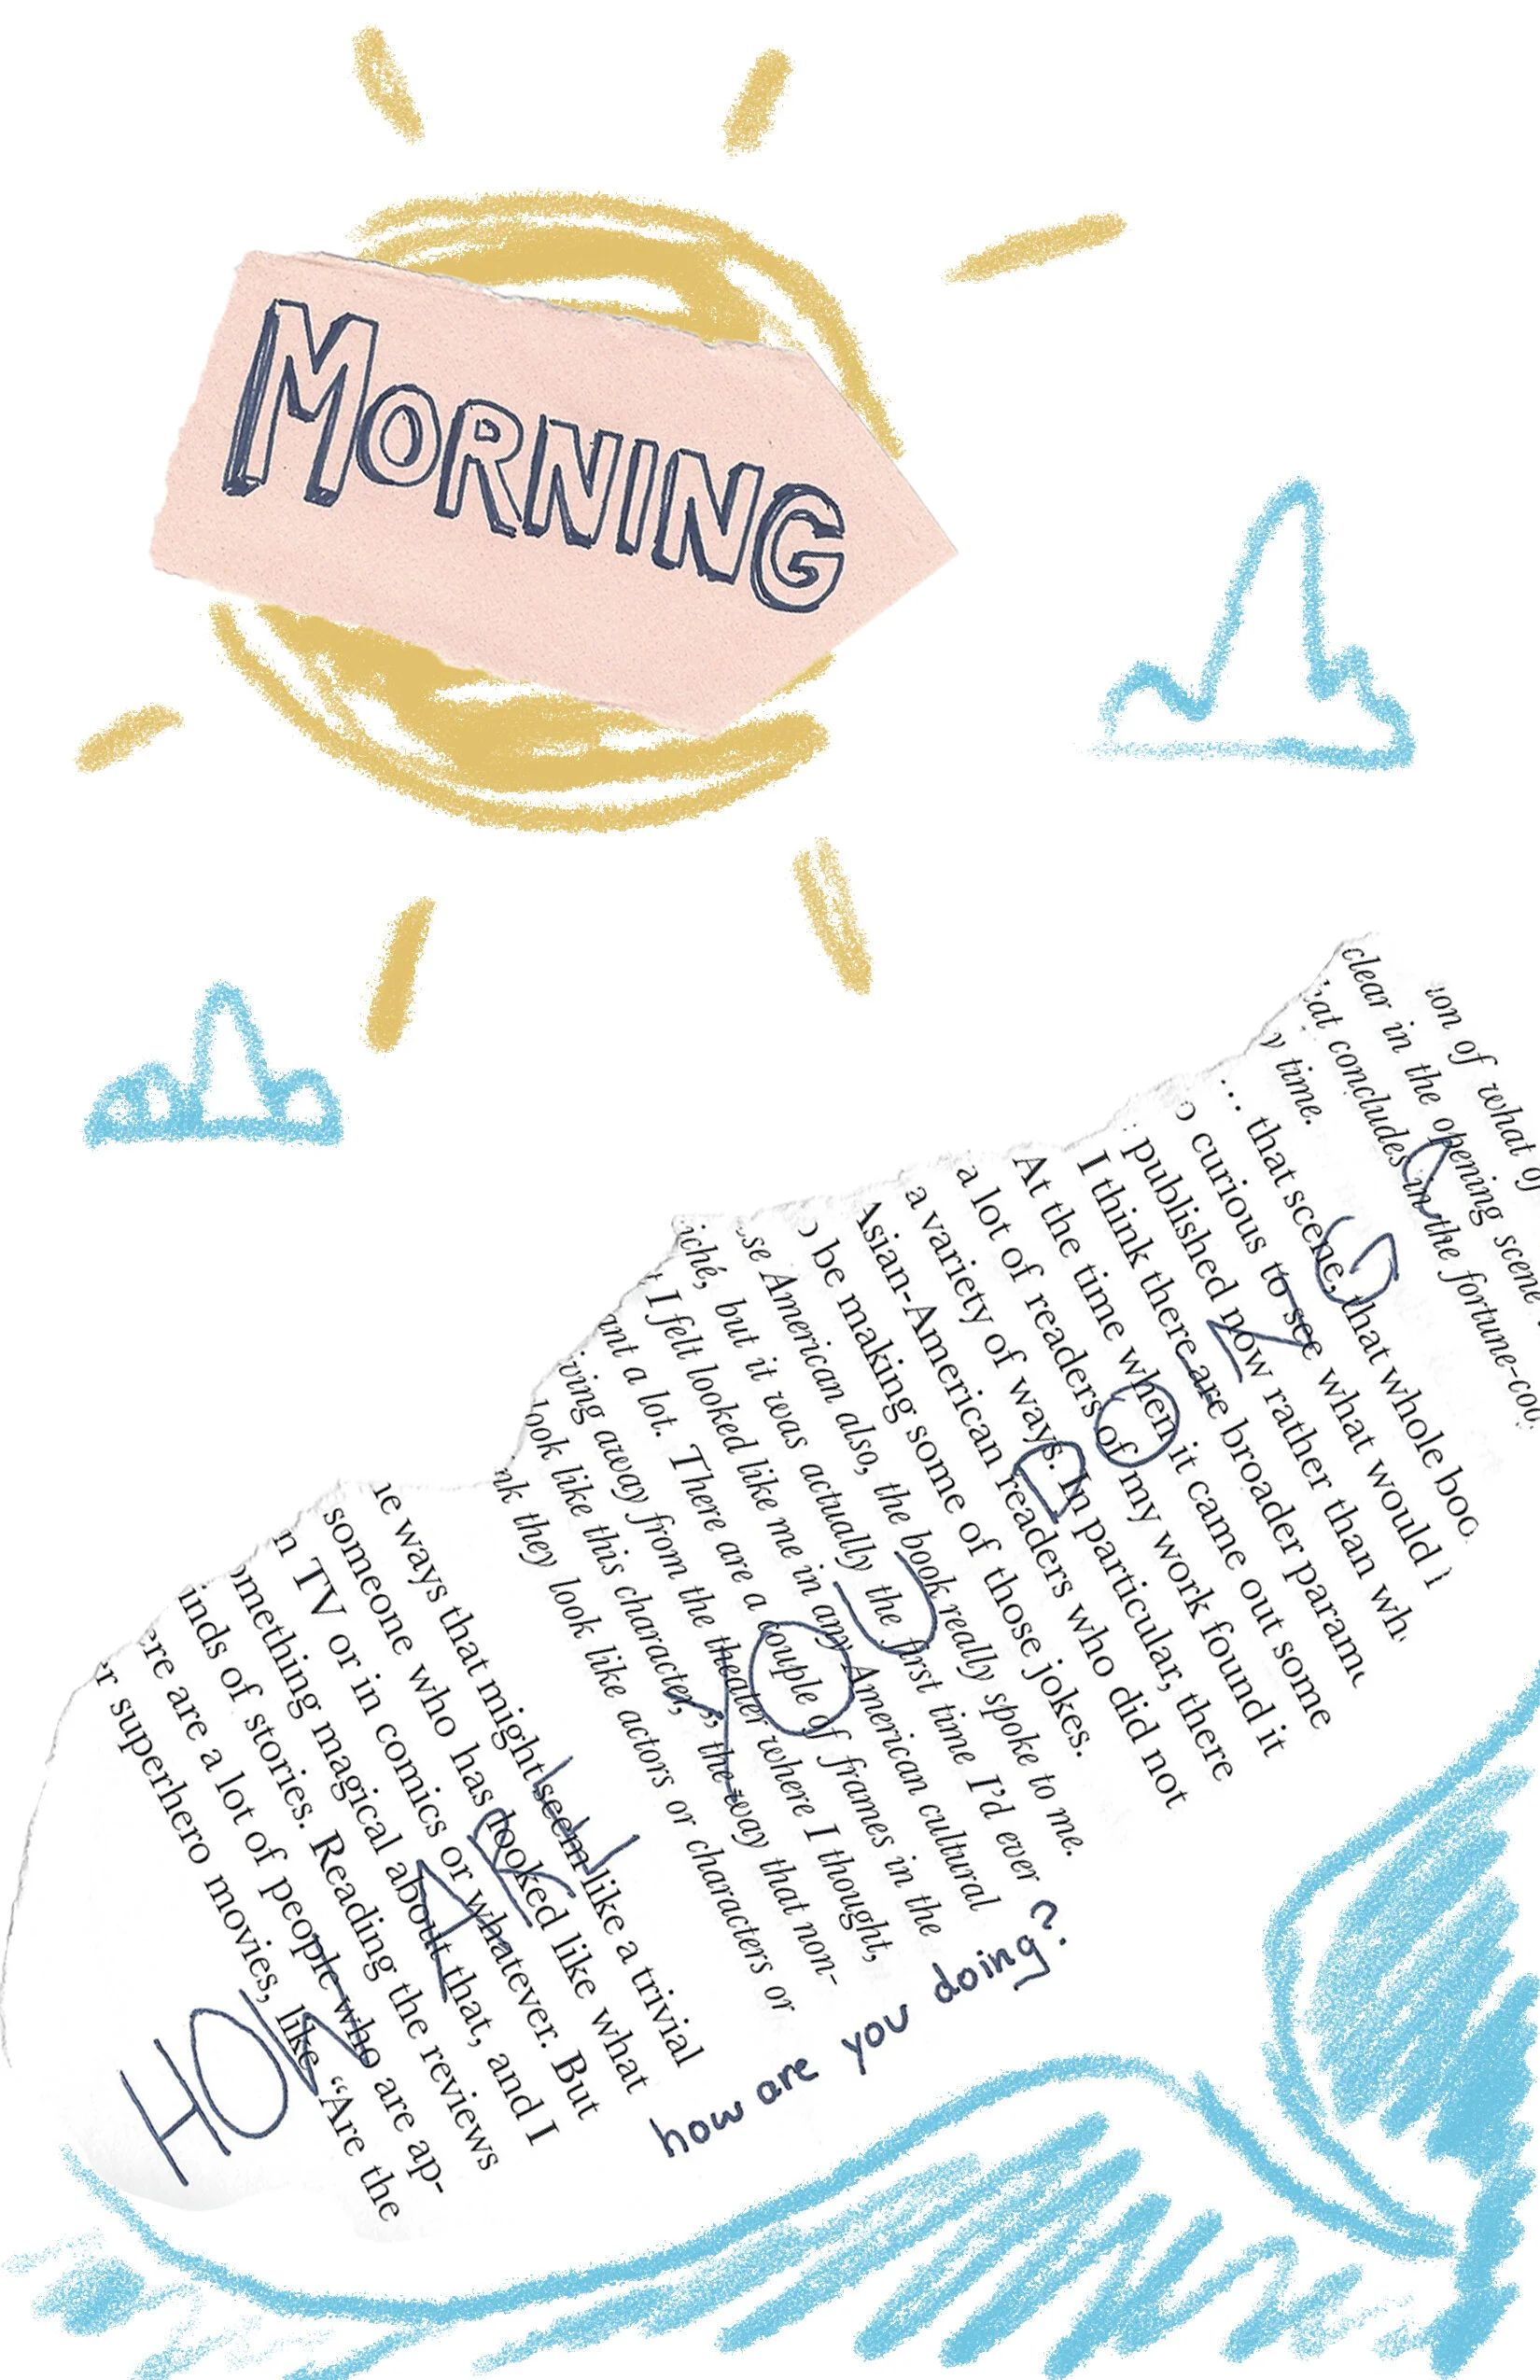 MORNING
of what
clear in the opening scene
concludes in the fortune-coo
time.
... that scene, that whole boo
curious to see what would
published now rather than wh
I think there are broader parame
At the time when it came out some
a lot of readers of my work found it
a variety of ways. In particular, there
Asian-American readers who did not
be making some of those jokes.
se American also, the book really spoke to me.
iché, but it was actually the first time I'd ever
I felt looked like me in any American cultural
ant a lot. There are a couple of frames in the
iving away from the theater where I thought,
look like this character,” the way that non-
nk they look like actors or characters or
le ways that might seem like a trivial
someone who has looked like what
n TV or in comics or whatever. But
omething magical about that, and I
inds of stories. Reading the reviews
ere are a lot of people who are ap-
er superhero movies, like “Are the
HOW ARE YOU DOING?
how are you doing?